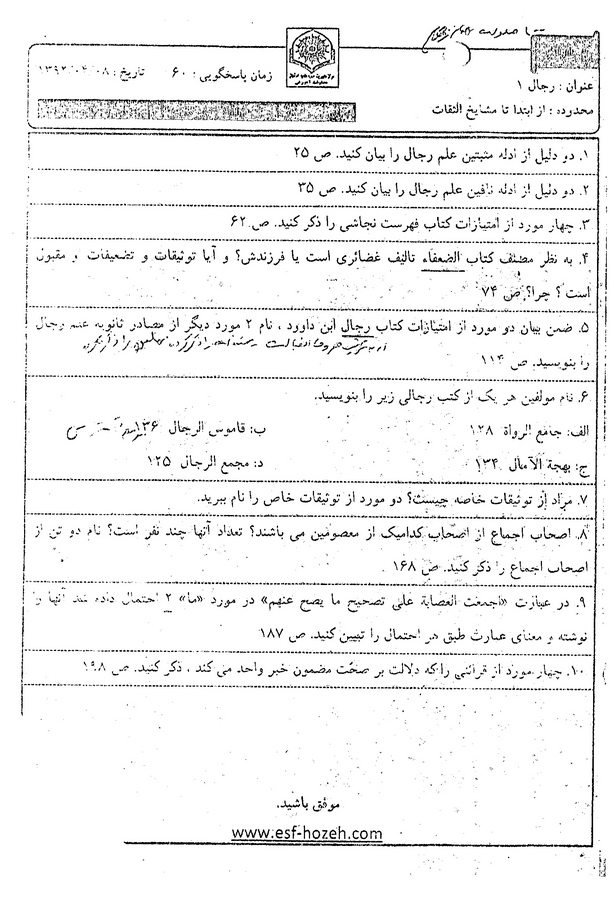 عنوان : رجال ۱
زمان پاسخگویی : ۶۰
تاریخ : ۱۳۹۲/۰۴/۰۸
محدوده : از ابتدا تا مشایخ الثقات
۱. دو دلیل از ادله مثبتین علم رجال را بیان کنید. ص ۲۵
۲. دو دلیل از ادله نافین علم رجال را بیان کنید. ص ۳۵
۳. چهار مورد از امتیازات کتاب فهرست نجاشی را ذکر کنید. ص ۶۲
۴. به نظر مصنف کتاب الضعفاء تالیف غضائری است یا فرزندش؟ و آیا توثیقات و تضعیفات و مقبول
است ؟ چرا؟ ص ۷۴
۵. ضمن بیان دو مورد از امتیازات کتاب رجال ابن داوود ، نام ۲ مورد دیگر از مصادر ثانویه علم رجال
را بنویسید. ص ۱۱۴
۶. نام مولفین هر یک از کتب رجالی زیر را بنویسید.
الف: جامع الرواة ۱۲۸ ب: قاموس الرجال ۱۳۶
ج: بهجة الآمال ۱۳۴ د: مجمع الرجال ۱۲۵
۷. مراد از توثیقات خاصه چیست؟ دو مورد از توثیقات خاص را نام ببرید.
۸. اصحاب اجماع از اصحاب کدامیک از معصومین می باشند؟ تعداد آنها چند نفر است؟ نام دو تن از
اصحاب اجماع را ذکر کنید. ص ۱۶۸
۹. در عبارت «اجمعت العصابة علی تصحیح ما یصح عنهم» در مورد «ما» ۲ احتمال داده شد آنها را
نوشته و معنای عبارت طبق هر احتمال را تبیین کنید. ص ۱۸۷
۱۰. چهار مورد از قرائنی را که دلالت بر صحت مضمون خبر واحد می کند ، ذکر کنید. ص ۱۹۸
موفق باشید.
www.esf-hozeh.com